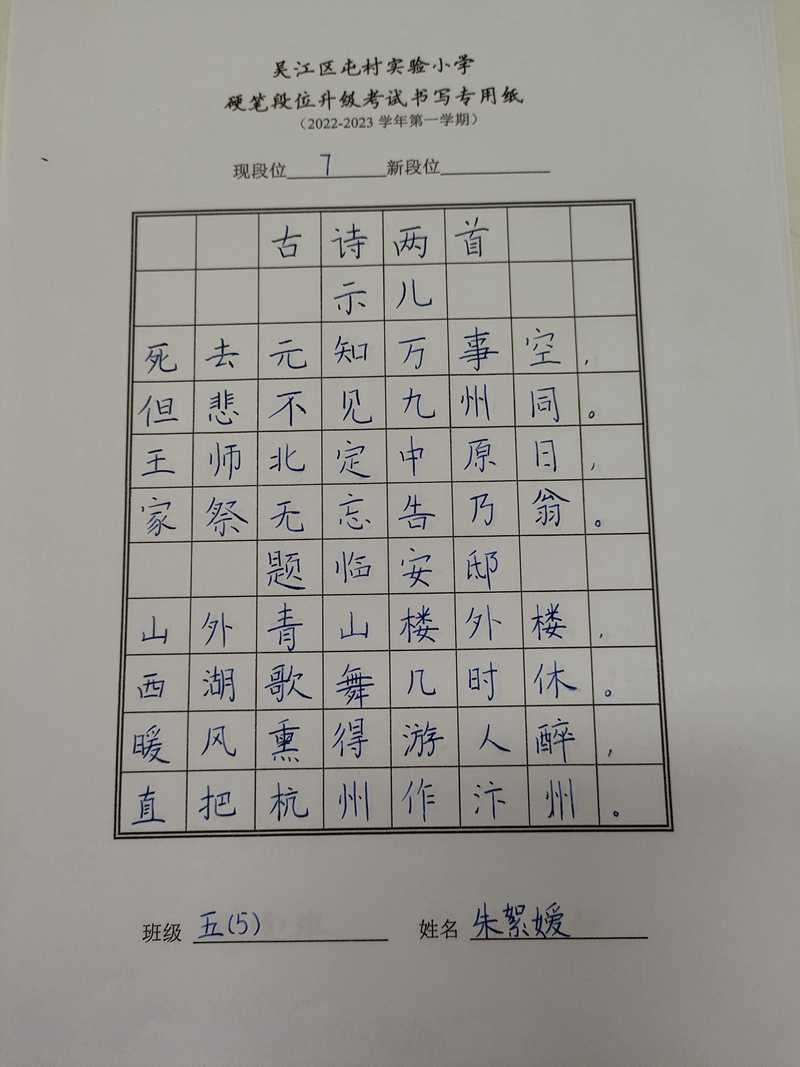 吴江区屯村实验小学
硬笔段位升级考试书写专用纸
（2022-2023 学年第一学期）
现段位 7 新段位
古诗两首
示儿
死去元知万事空，
但悲不见九州同。
王师北定中原日，
家祭无忘告乃翁。
题临安邸
山外青山楼外楼，
西湖歌舞几时休。
暖风熏得游人醉，
直把杭州作汴州。
班级 五(5) 姓名 朱絮嫒